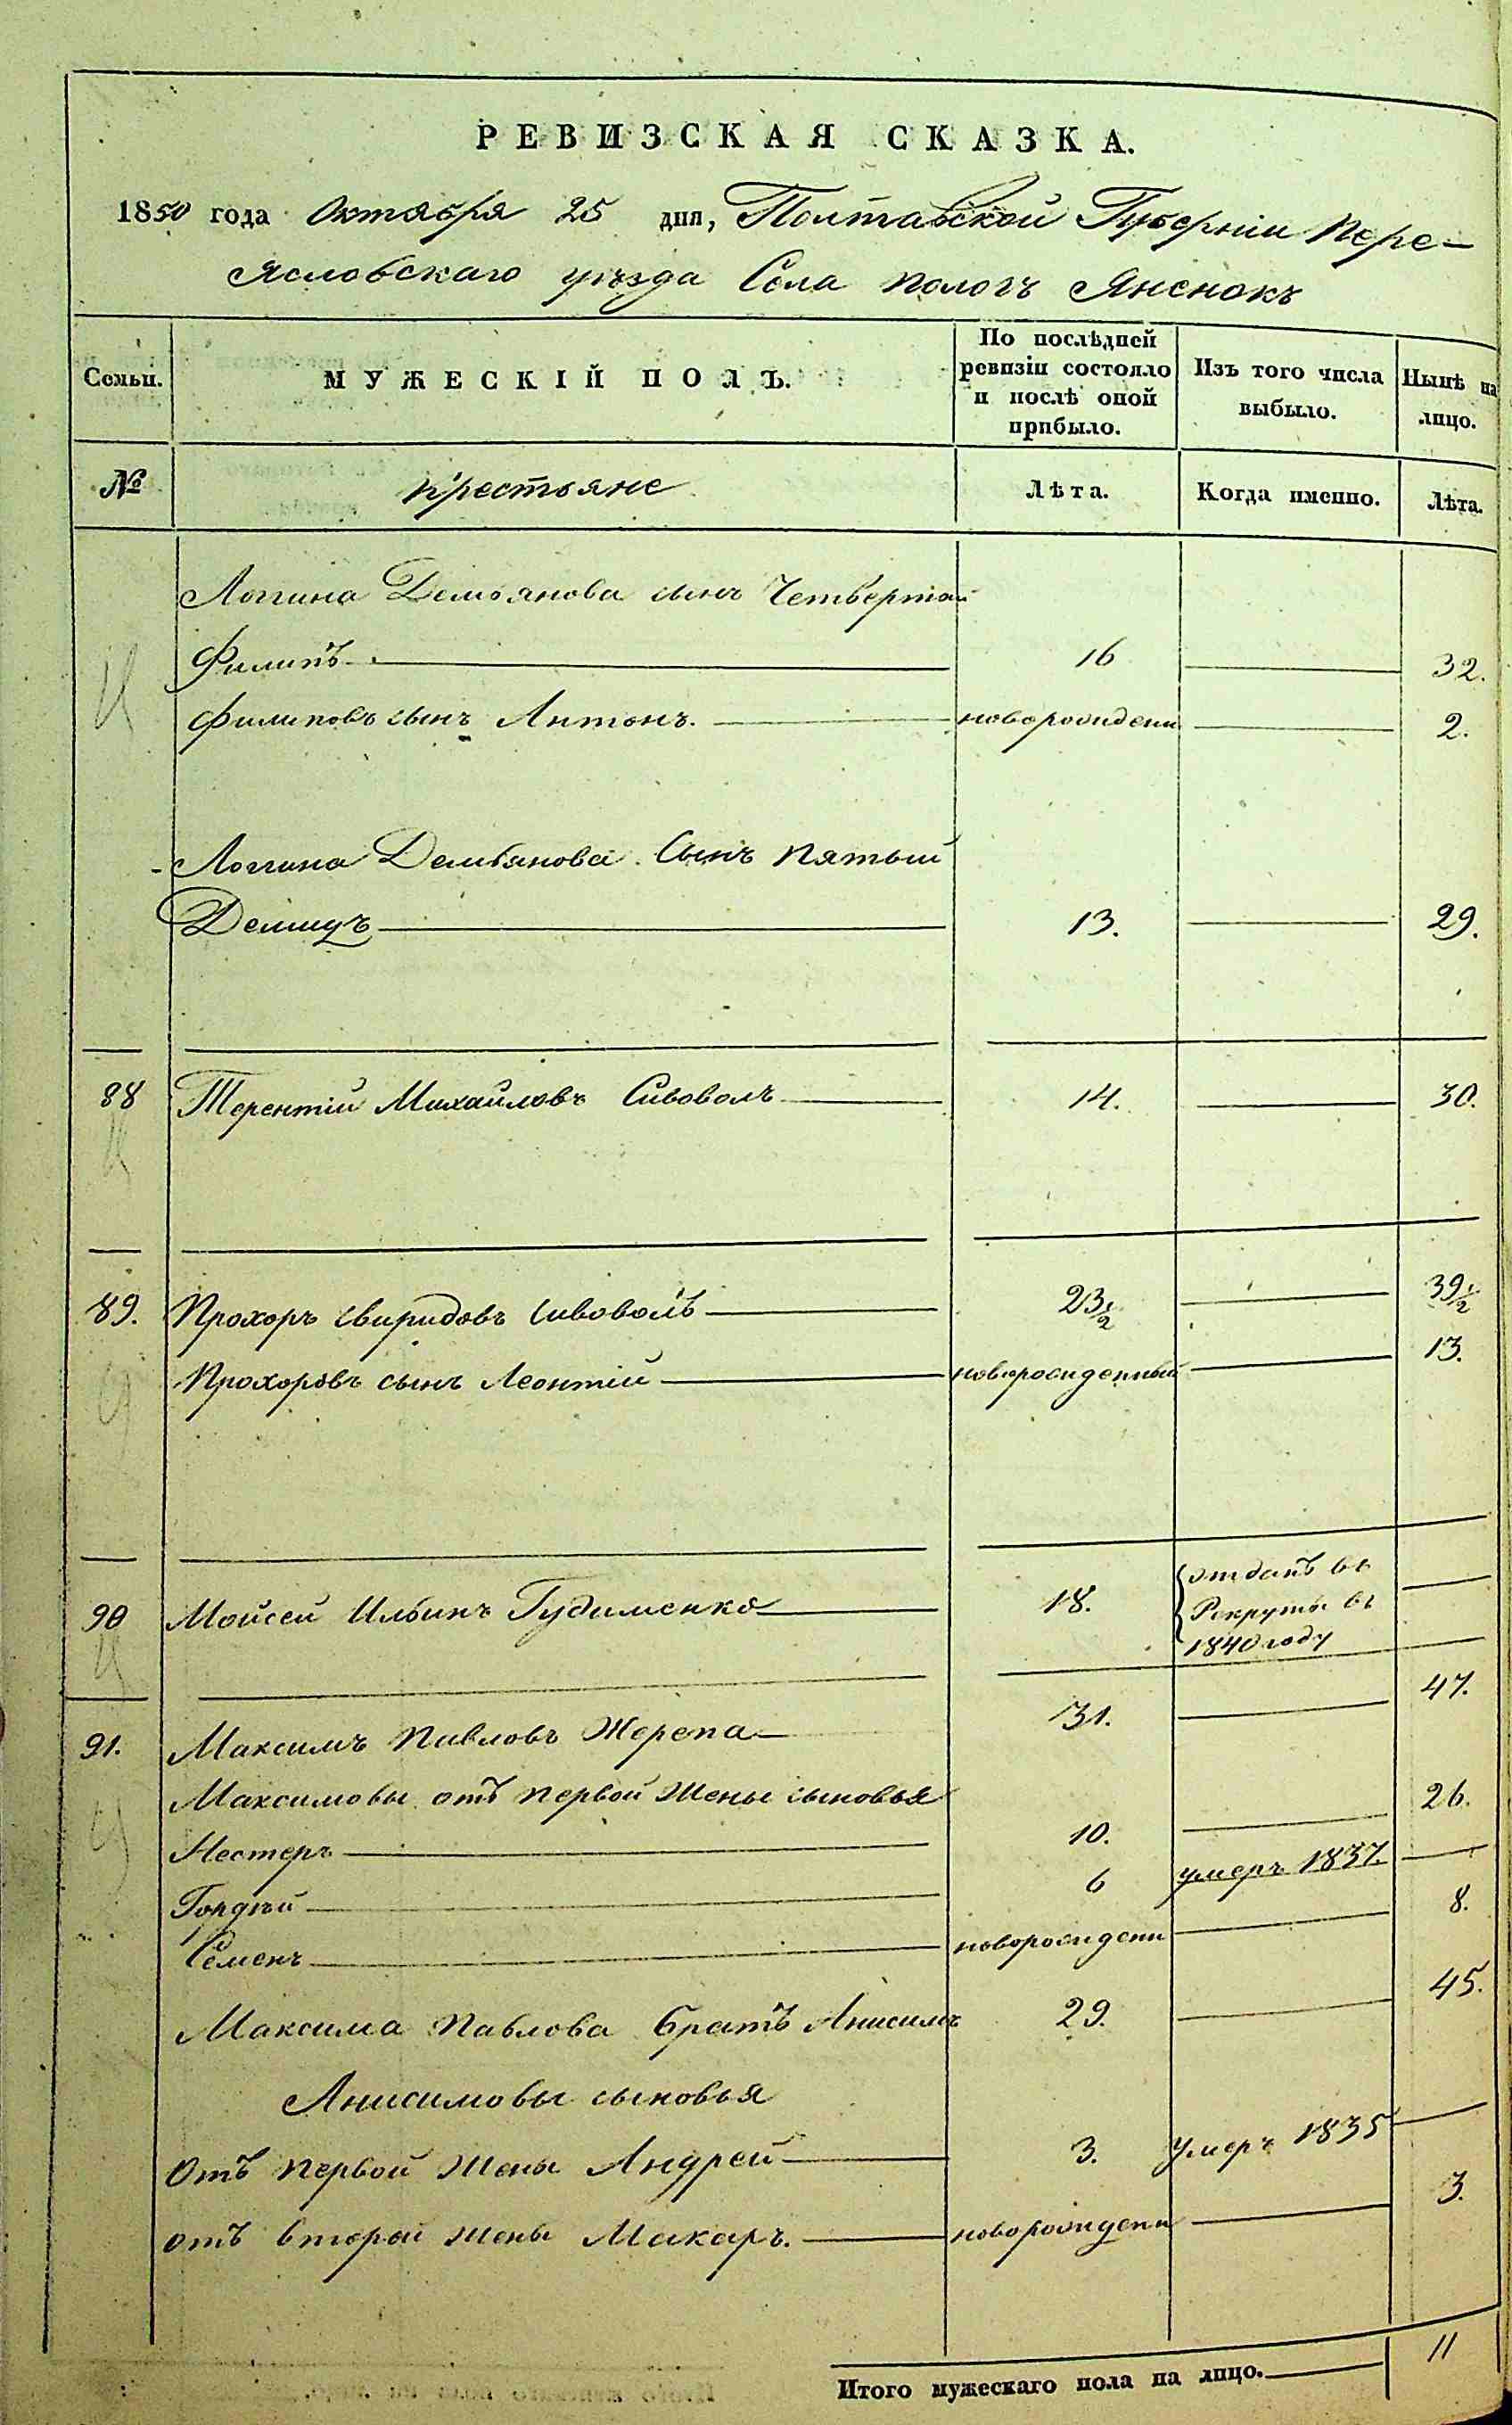 РЕВИЗСКАЯ СКАЗКА.
1850 года Октября 25 дня, Полтавской Губерніи Пере-
ясловскаго уѣзда Села Пологъ Яненокъ
Семьи.
МУЖЕСКІЙ ПОЛЪ.
По послѣдней ревизіи состояло и послѣ оной прибыло.
Изъ того числа выбыло.
Нынѣ на лицо.
№ Крестьяне Лѣта. Когда именно. Лѣта.
Логгина Демьянова сынъ Четвертой
Филипъ 16 32.
Филиповъ сынъ Антонъ. новорожден 2.
Логгина Демьянова Сынъ Пятый
Демидъ 13. 29.
88 Терентій Михайловъ Сивоволъ 14. 30.
89. Прохоръ Свиридовъ Сивоволъ 23½ 39½
Прохоровъ сынъ Леонтій новорожденный 13.
90 Мойсей Ильинъ Гудименко 18. отданъ въ
Рекруты въ
1840 году
91. Максимъ Павловъ Жерепа 31. 47.
Максимовы отъ первой жены сыновья
Нестеръ 10. 26.
Гордѣй 6 умеръ 1837.
Семенъ новорожден 8.
Максима Павлова братъ Анисимъ 29. 45.
Анисимовы сыновья
Отъ первой жены Андрей 3. умеръ 1835
отъ второй жены Макаръ. новорожден 3.
Итого мужескаго пола на лицо. 11